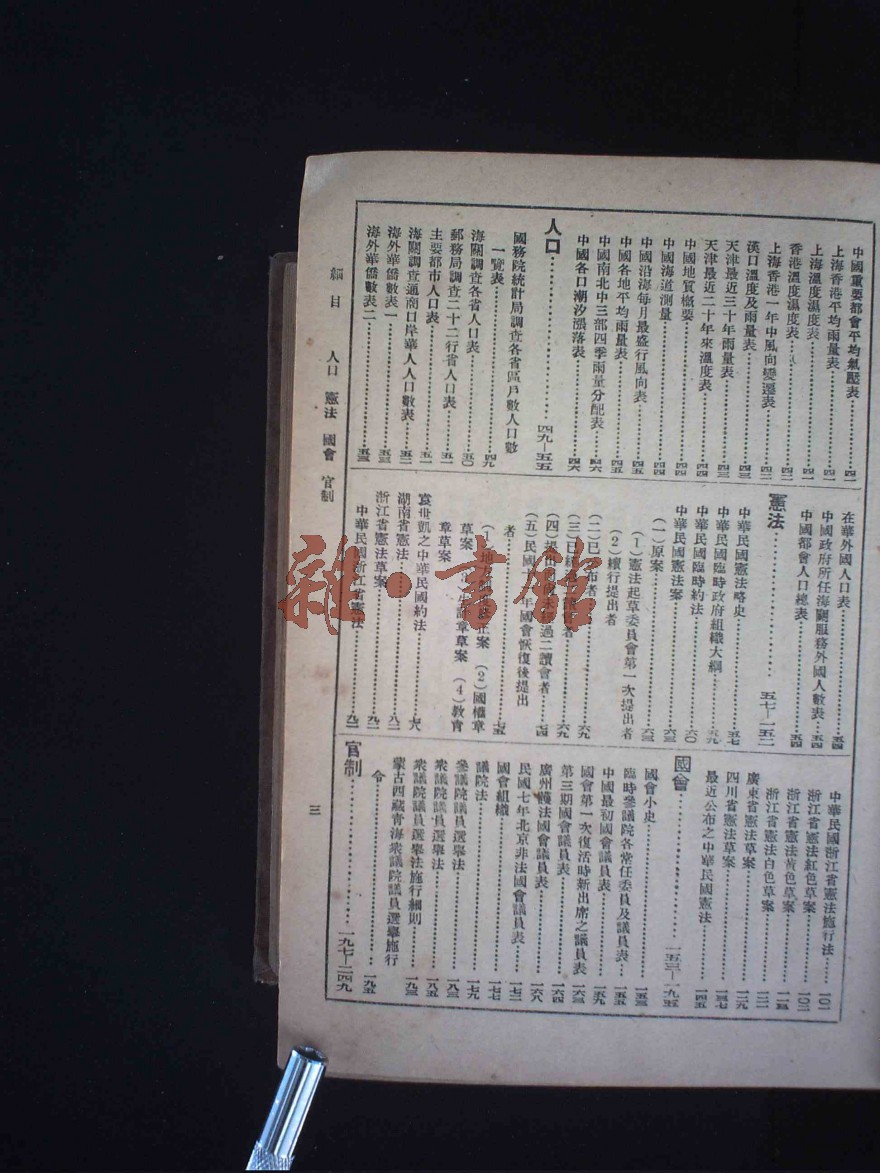 中國重要都會平均氣壓表……四一
上海香港平均雨量表……四一
上海溫度濕度表……四一
香港溫度濕度表……四二
上海香港一年中風向變遷表……四二
漢口溫度及雨量表……四三
天津最近三十年雨量表……四三
天津最近二十年來溫度表……四四
中國地質槪要……四四
中國海道測量……四四
中國沿海每月最盛行風向表……四五
中國各地平均雨量表……四五
中國南北中三部四季雨量分配表……四六
中國各口潮汐漲落表……四六
人口……四九—五五
國務院統計局調查各省區戶數人口數
一覽表……四九
海關調查各省人口表……五〇
郵務局調查二十二行省人口表……五一
主要都市人口表……五一
海關調查通商口岸華人人口數表……五二
海外華僑數表一……五三
海外華僑數表二……五三
在華外國人口表……五四
中國政府所任海關服務外國人數表……五四
中國都會人口總表……五四
憲法……五七—一五二
中華民國憲法略史……五七
中華民國臨時政府組織大綱……五九
中華民國臨時約法……六〇
中華民國憲法案……六三
(一)原案……六三
(1)憲法起草委員會第一次提出者
(2)續行提出者
(二)已 布者……六九
(三)已經 者……六九
(四)提出 未 過二讀會者……七四
(五)民國 年國會恢復後提出
者……七五
(1)地方 正案 (2)國權章
草案 生計章草案 (4)敎育
章草案
袁世凱之中華民國約法……七八
湖南省憲法……八二
浙江省憲法草案……九二
中華民國浙江省憲法……九二
中華民國浙江省憲法施行法……一〇二
浙江省憲法紅色草案……一〇三
浙江省憲法黃色草案……一一三
浙江省憲法白色草案……一二一
廣東省憲法草案……一二九
四川省憲法草案……一三七
最近公布之中華民國憲法……一四五
國會……一五三—一九五
國會小史……一五三
臨時參議院各常任委員及議員表……一五五
中國最初國會議員表……一五九
國會第一次復活時新出席之議員表……一六三
第三期國會議員表……一六四
廣州護法國會議員表……一六八
民國七年北京非法國會議員表……一七二
國會組織……一七七
議院法……一七九
參議院議員選舉法……一八三
衆議院議員選舉法……一八五
衆議院議員選舉法施行細則……一九三
蒙古西藏靑海衆議院議員選舉施行
令……一九五
官制……一九七—二四九
綱目 人口 憲法 國會 官制
三
雜·書館